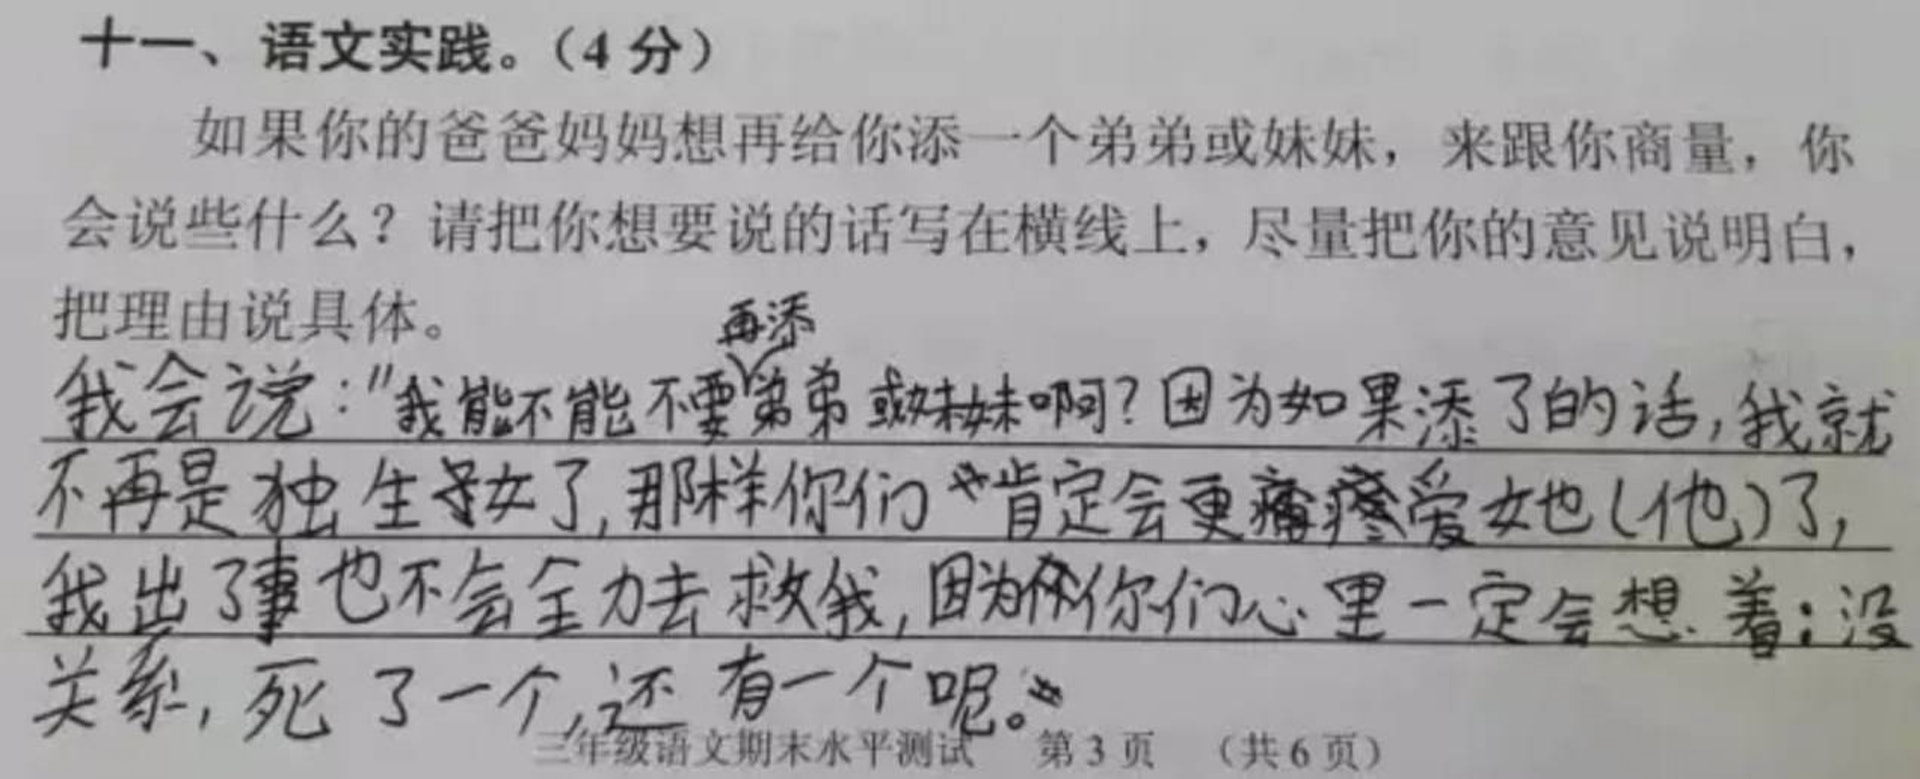 十一、语文实践。（4 分）
如果你的爸爸妈妈想再给你添一个弟弟或妹妹，来跟你商量，你
会说些什么？请把你想要说的话写在横线上，尽量把你的意见说明白，
把理由说具体。
再添
我会说："我能不能不要弟弟或妹妹啊？因为如果添了的话，我就
不再是独生子女了，那样你们肯定会更疼爱她（他）了，
我出了事也不会全力去救我，因为你们心里一定会想着：没
关系，死了一个，还有一个呢。"
三年级语文期末水平测试 第 3 页 （共 6 页）